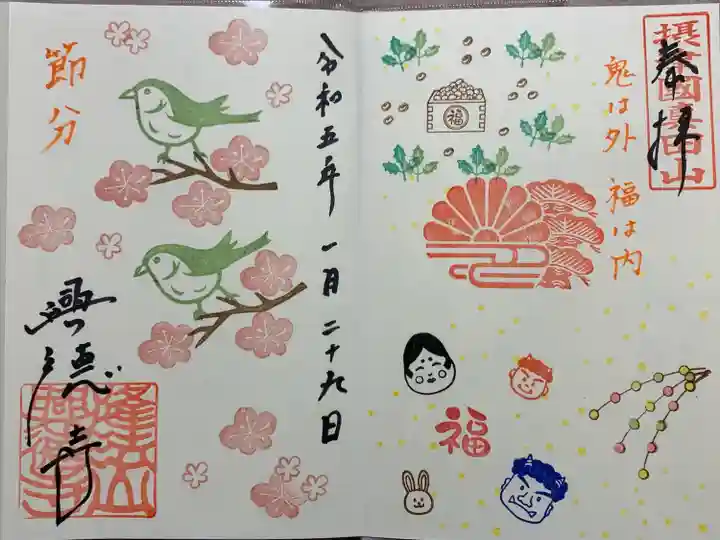 奉拝
鬼は外
福は内
福
福
令和五年一月二十九日
節分
興徳寺